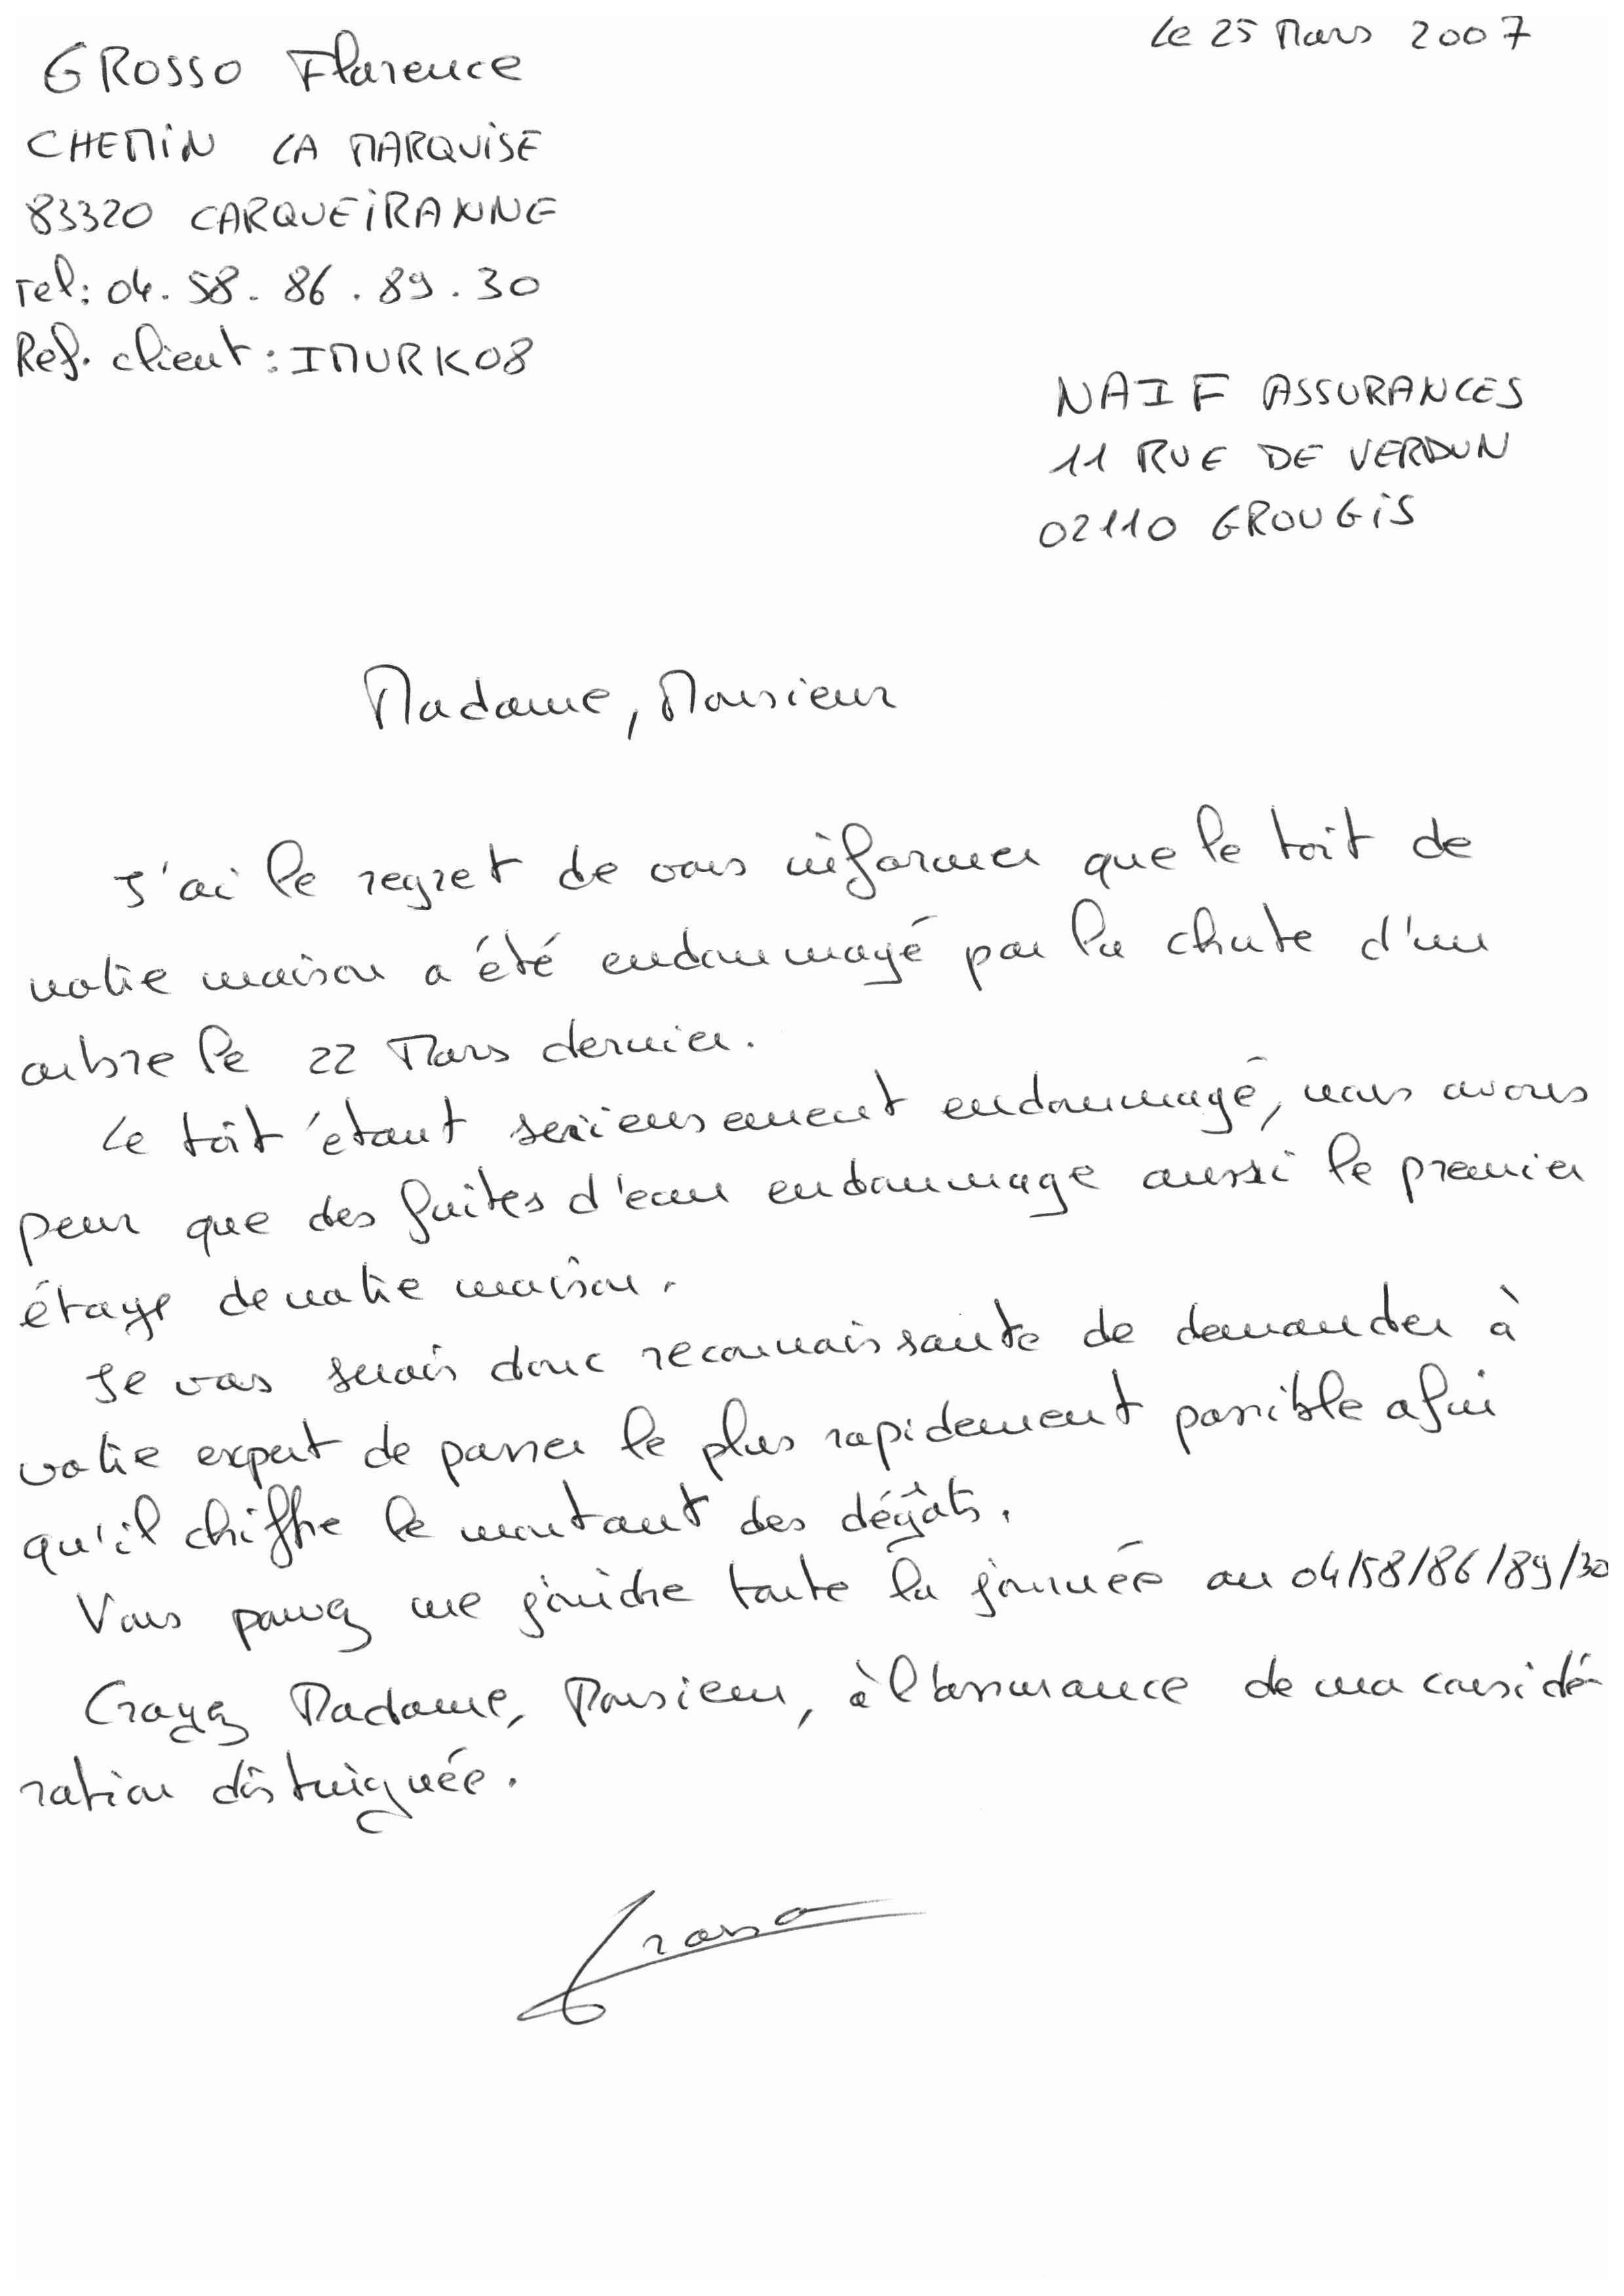 Le 25 Mars 2007
GROSSO Florence
CHEMIN LA MARQUISE
83320 CARQUEIRANNE
Tel: 04. 58. 86. 89. 30
Ref. client : IMURK08
NAIF ASSURANCES
11 RUE DE VERDUN
02110 GROUGIS
Madame, Monsieur
J'ai le regret de vous informer que le toit de
notre maison a été endommagé par la chute d'un
arbre le 22 Mars dernier.
Le toit étant serieusement endommagé, nous avons
peur que des fuites d'eau endommage aussi le premier
étage de notre maison.
Je vous serais donc reconnaissante de demander à
votre expert de passer le plus rapidement possible afin
qu'il chiffre le montant des dégâts.
Vous pouvez me joindre toute la journée au 04/58/86/89/30
Croyez Madame, Monsieur, à l'assurance de ma considé-
ration distinguée.
Grosso